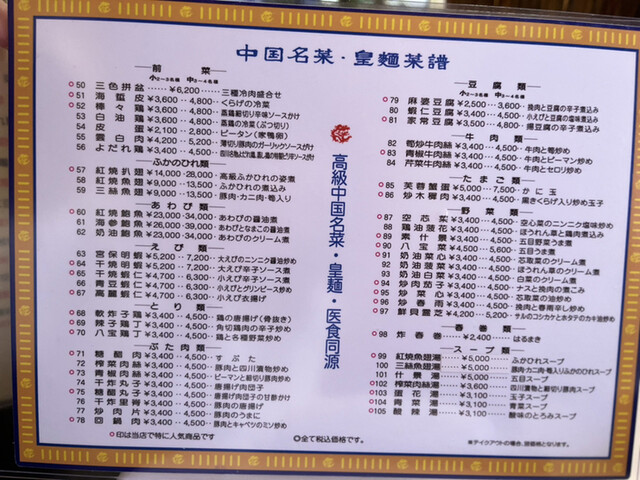 中国名菜・皇麺菜譜
前菜
小2〜3名様 中3〜4名様
○50 三色拼盆 ‥‥‥¥6,200‥‥‥三種冷肉盛合せ
○51 海蜇皮 ¥3,600‥4,800‥くらげの冷菜
○52 棒々鶏 ¥3,600‥4,800‥蒸鶏細切り胡麻味ソースかけ
53 白油鶏 ¥3,600‥4,800‥蒸鶏の冷菜(ぶつ切り)
54 皮蛋 ¥2,100‥2,800‥ピータン(家鴨卵)
55 雲白肉 ¥4,200‥5,200‥薄切り豚肉のガーリックソースがけ
56 よだれ鶏 ¥3,600‥4,800‥
ふかのひれ類
○57 紅焼扒翅 ¥14,000‥28,000‥高級ふかひれの姿煮
58 紅焼魚翅 ¥9,500‥13,500‥ふかひれの煮込み
59 三絲魚翅 ¥9,500‥13,500‥豚肉・カニ肉・筍入り
あわび類
○60 紅焼鮑魚 ¥23,000‥34,000‥あわびの醤油煮
61 海参鮑魚 ¥26,000‥39,000‥あわびとなまこの醤油煮
62 奶油鮑魚 ¥23,000‥34,000‥あわびのクリーム煮
えび類
63 宮保明蝦 ¥5,200‥7,200‥大えびのニンニク醤油炒め
○64 干焼明蝦 ¥5,200‥7,200‥大えび辛子ソース煮
○65 干焼蝦仁 ¥3,400‥4,700‥小えび辛子ソース煮
66 青豆蝦仁 ¥3,400‥4,700‥小えびとグリンピース炒め
○67 高麗蝦仁 ¥3,400‥4,700‥小えび衣揚げ
とり類
○68 軟炸子鶏 ¥3,400‥4,500‥鶏の唐揚げ(骨抜き)
○69 辣子鶏丁 ¥3,400‥4,500‥角切鶏肉の辛子炒め
○70 八宝鶏丁 ¥3,400‥4,500‥鶏と各種野菜炒め
ぶた肉類
○71 糖醋肉 ¥3,400‥4,500‥すぶた
72 搾菜肉絲 ¥3,400‥4,500‥豚肉と四川漬物炒め
73 青椒肉絲 ¥3,400‥4,500‥ピーマンと細切り豚肉炒め
74 干炸丸子 ¥3,400‥4,500‥唐揚げ肉団子
75 糖醋丸子 ¥3,400‥4,500‥唐揚げ肉団子の甘酢かけ
76 干炸里脊 ¥3,400‥4,500‥豚肉の唐揚げ
77 炒肉片 ¥3,400‥4,500‥豚肉のうまに
○78 回鍋肉 ¥3,400‥4,500‥豚肉とキャベツのミソ炒め
○印は当店で特に人気商品です
◎全て税込価格です。
高級中国名菜・皇麺・医食同源
豆腐類
小2〜3名様 中3〜4名様
○79 麻婆豆腐 ¥2,500‥3,600‥挽肉と豆腐の辛子煮込み
80 蝦仁豆腐 ¥3,400‥4,700‥小えびと豆腐の塩味煮込み
○81 家常豆腐 ¥2,800‥3,800‥揚豆腐の辛子煮込み
牛肉類
82 筍炒牛肉絲 ¥3,400‥4,500‥牛肉と筍炒め
○83 青椒牛肉絲 ¥3,400‥4,500‥牛肉とピーマン炒め
84 芹菜牛肉絲 ¥3,400‥4,500‥牛肉とセロリ炒め
たまご類
○85 芙蓉蟹蛋 ¥5,000‥7,500‥かに玉
○86 炒木樨肉 ¥3,400‥4,500‥黒きくらげ入り炒め玉子
野菜類
○87 空芯菜 ¥3,400‥4,500‥空心菜のニンニク塩味炒め
88 鶏油菠菜 ¥3,400‥4,500‥ほうれん草と鶏肉煮込み
○89 素什景 ¥3,400‥4,500‥五目野菜うま煮
○90 八宝菜 ¥4,500‥5,500‥五目うま煮
○91 奶油菜心 ¥3,400‥4,500‥芯取菜のクリーム煮
92 奶油菠菜 ¥3,400‥4,500‥ほうれん草のクリーム煮
93 奶油白菜 ¥3,400‥4,500‥白菜のクリーム煮
○94 炒肉茄子 ¥3,400‥4,500‥ナスと挽肉のミソ煮こみ
○95 炒菜心 ¥3,400‥4,500‥芯取菜の油炒め
○96 炒春雨 ¥3,400‥4,500‥挽肉と春雨辛し炒め
○97 鮮貝靈芝 ¥4,200‥5,200‥サルのコシカケとホタテのカキ油炒め
春巻類
○98 炸春巻 ‥‥‥¥2,400‥‥‥はるまき
スープ類
○99 紅焼魚翅湯 ‥‥¥5,000‥‥ふかひれスープ
100 三絲魚翅湯 ‥‥¥5,000‥‥豚肉・カニ肉・筍入りふかひれスープ
○101 什景湯 ‥‥¥3,400‥‥五目スープ
○102 搾菜肉絲湯 ‥‥¥3,400‥‥四川漬物と細切り豚肉スープ
○103 蛋花湯 ‥‥¥3,100‥‥玉子スープ
104 青菜湯 ‥‥¥3,100‥‥青菜スープ
○105 酸辣湯 ‥‥¥3,100‥‥酸味のとろみスープ
※テイクアウトの場合、別価格となります。